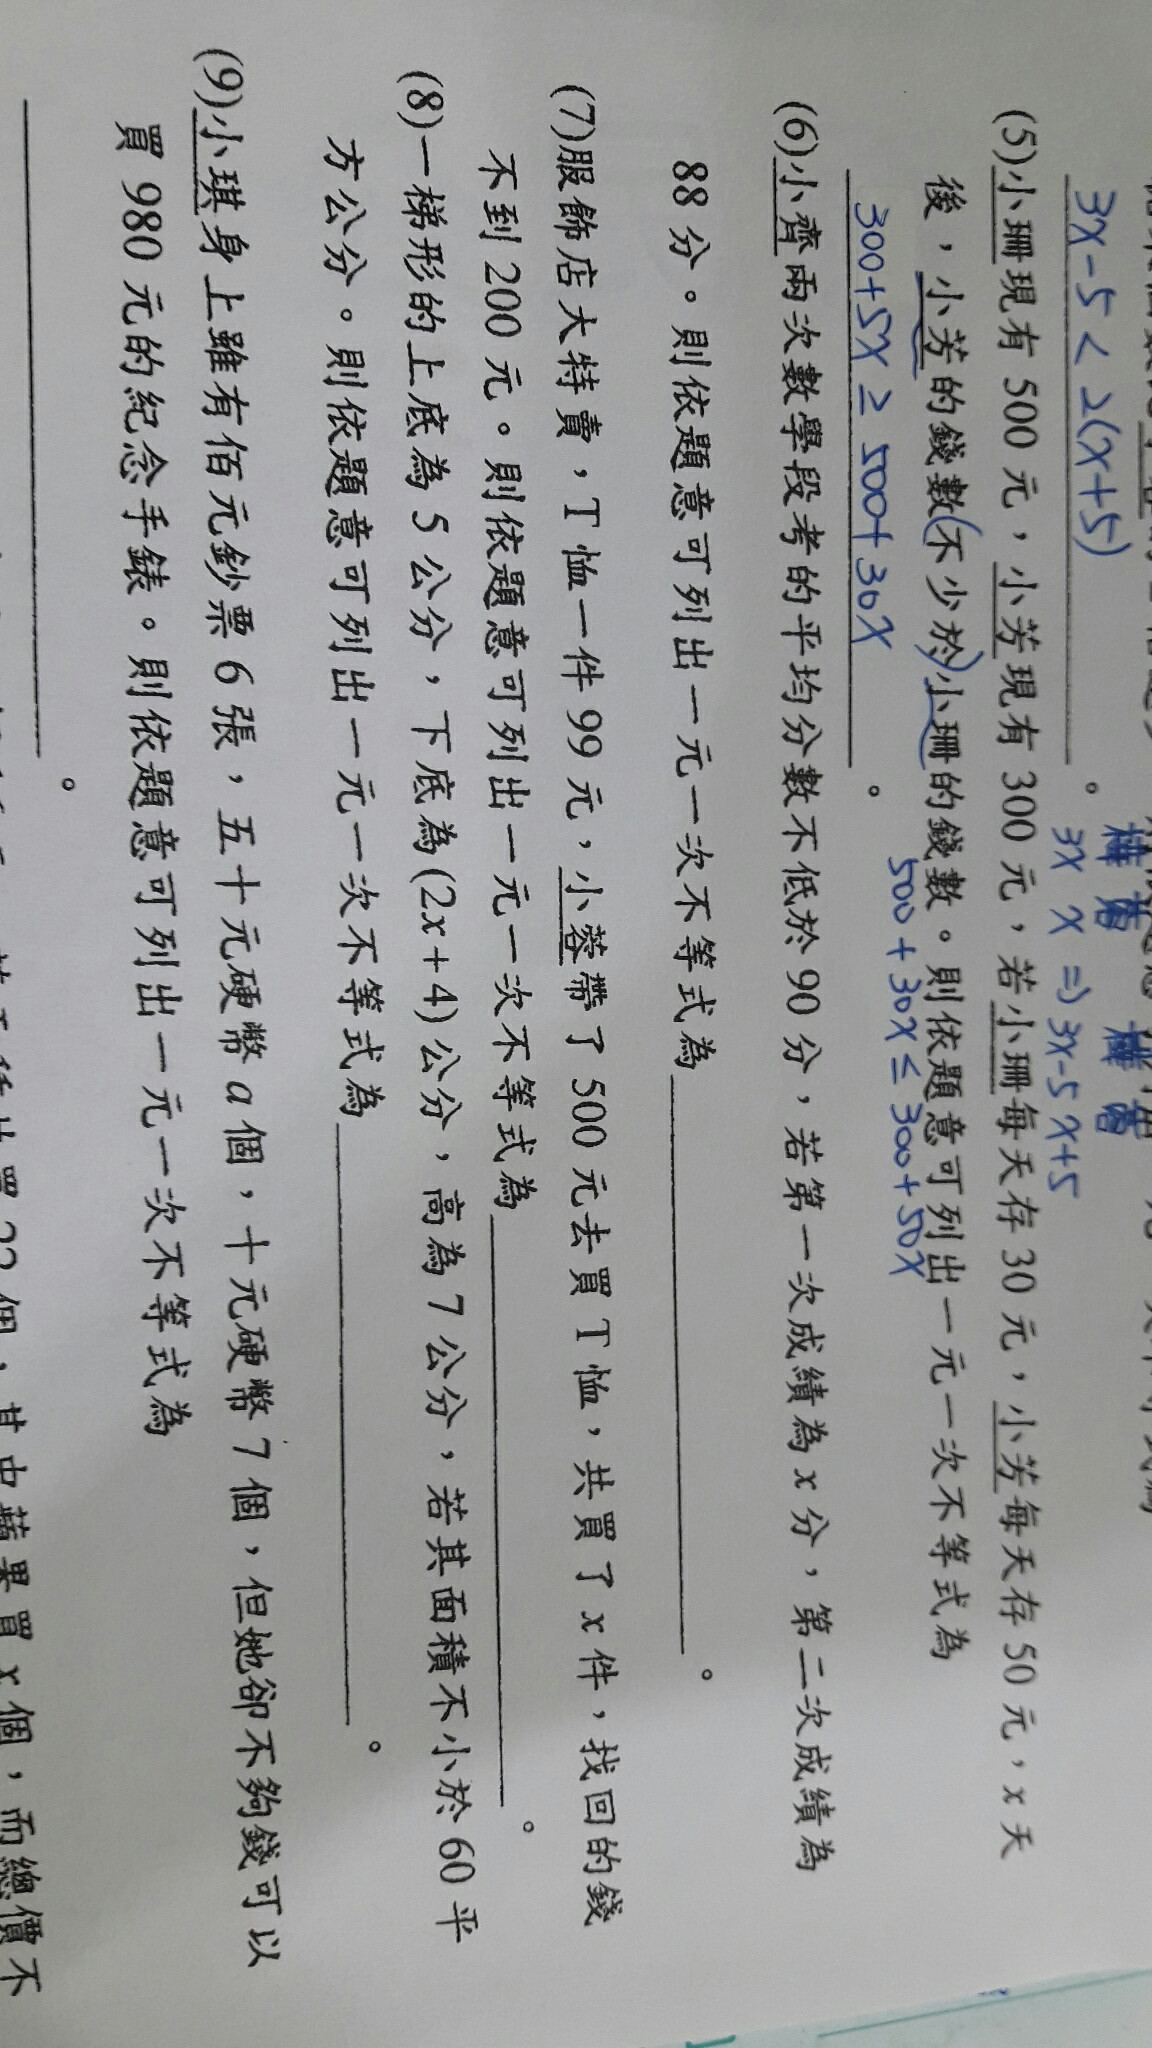 3x-5<2(x+5)。
3x x ⇒ 3x-5 x+5
(5)小珊現有 500 元，小芳現有 300 元，若小珊每天存 30 元，小芳每天存 50 元，x 天
後，小芳的錢數(不少於)小珊的錢數。則依題意可列出一元一次不等式為
500+30x≤300+50x
300+5x≥500+30x。
(6)小齊兩次數學段考的平均分數不低於 90 分，若第一次成績為 x 分，第二次成績為
88 分。則依題意可列出一元一次不等式為。
(7)服飾店大特賣，T 恤一件 99 元，小蓉帶了 500 元去買 T 恤，共買了 x 件，找回的錢
不到 200 元。則依題意可列出一元一次不等式為。
(8)一梯形的上底為 5 公分，下底為(2x+4)公分，高為 7 公分，若其面積不小於 60 平
方公分。則依題意可列出一元一次不等式為。
(9)小琪身上雖有佰元鈔票 6 張，五十元硬幣 a 個，十元硬幣 7 個，但她卻不夠錢可以
買 980 元的紀念手錶。則依題意可列出一元一次不等式為
。
買 22 個，其中蘋果買 x 個，而總價不